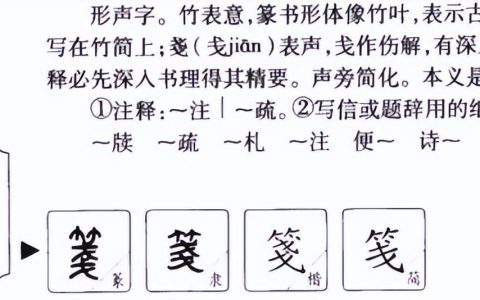 形声字。竹表意,篆书形体像竹叶,表示古
写在竹简上;戔(戋jiān)表声,戋作伤解,有深
释必先深入书理得其精要。声旁简化。本义是
①注释:~注|~疏。②写信或题辞用的纸
~牍 ~疏 ~札 ~注 便~ 诗~
箋 箋 箋 笺
篆 隶 楷 简